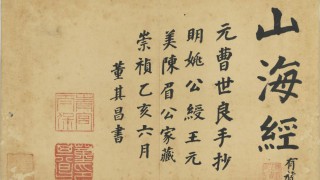 山海經
有圖
元曹世良手抄
明姚公綬王元
美陳眉公家藏
崇禎乙亥六月
董其昌書